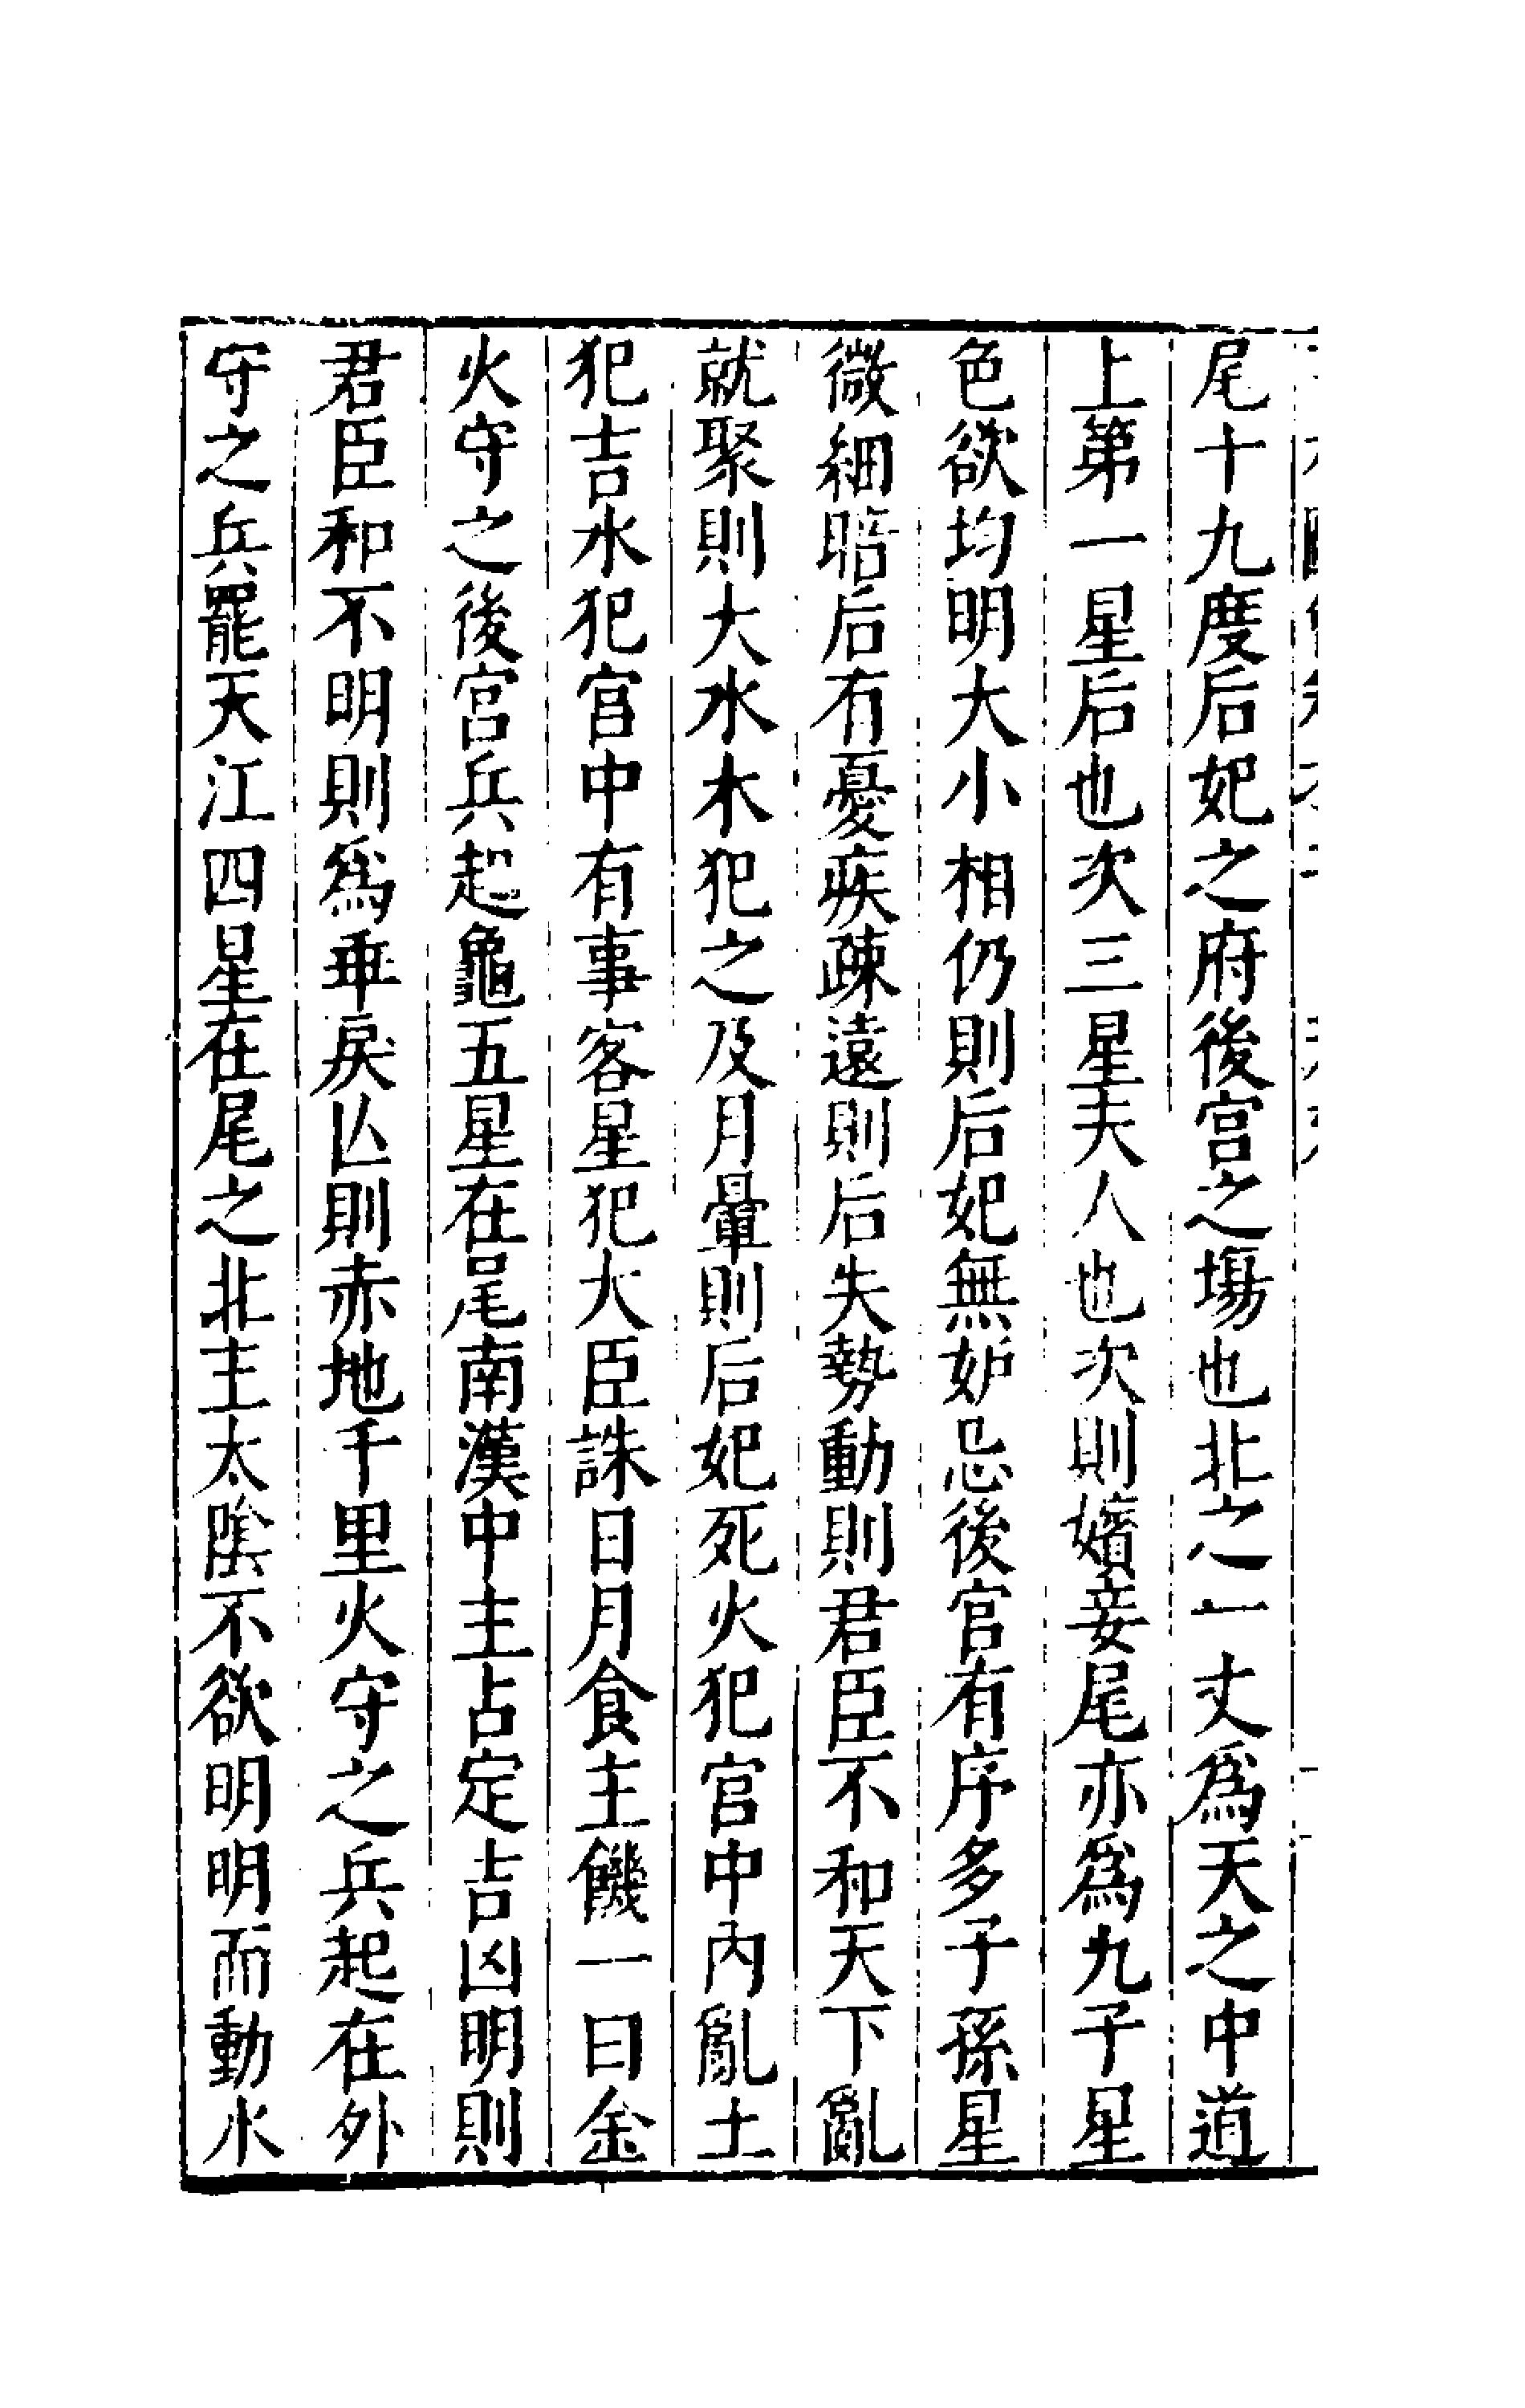 尾十九度后妃之府後宫之場也北之一丈爲天之中道
上第一星后也次三星夫人也次則嬪妾尾亦爲九子星
色欲均明大小相仍則后妃無妒忌後宫有序多子孫星
微細暗后有憂疾疎遠則后失勢動則君臣不和天下亂
就聚則大水木犯之及月暈則后妃死火犯宫中內亂土
犯吉水犯宫中有事客星犯大臣誅日月食主饑一曰金
火守之後宫兵起龜五星在尾南漢中主占定吉凶明則
君臣和不明則爲乖戾亾則赤地千里火守之兵起在外
守之兵罷天江四星在尾之北主太隂不欲明明而動水